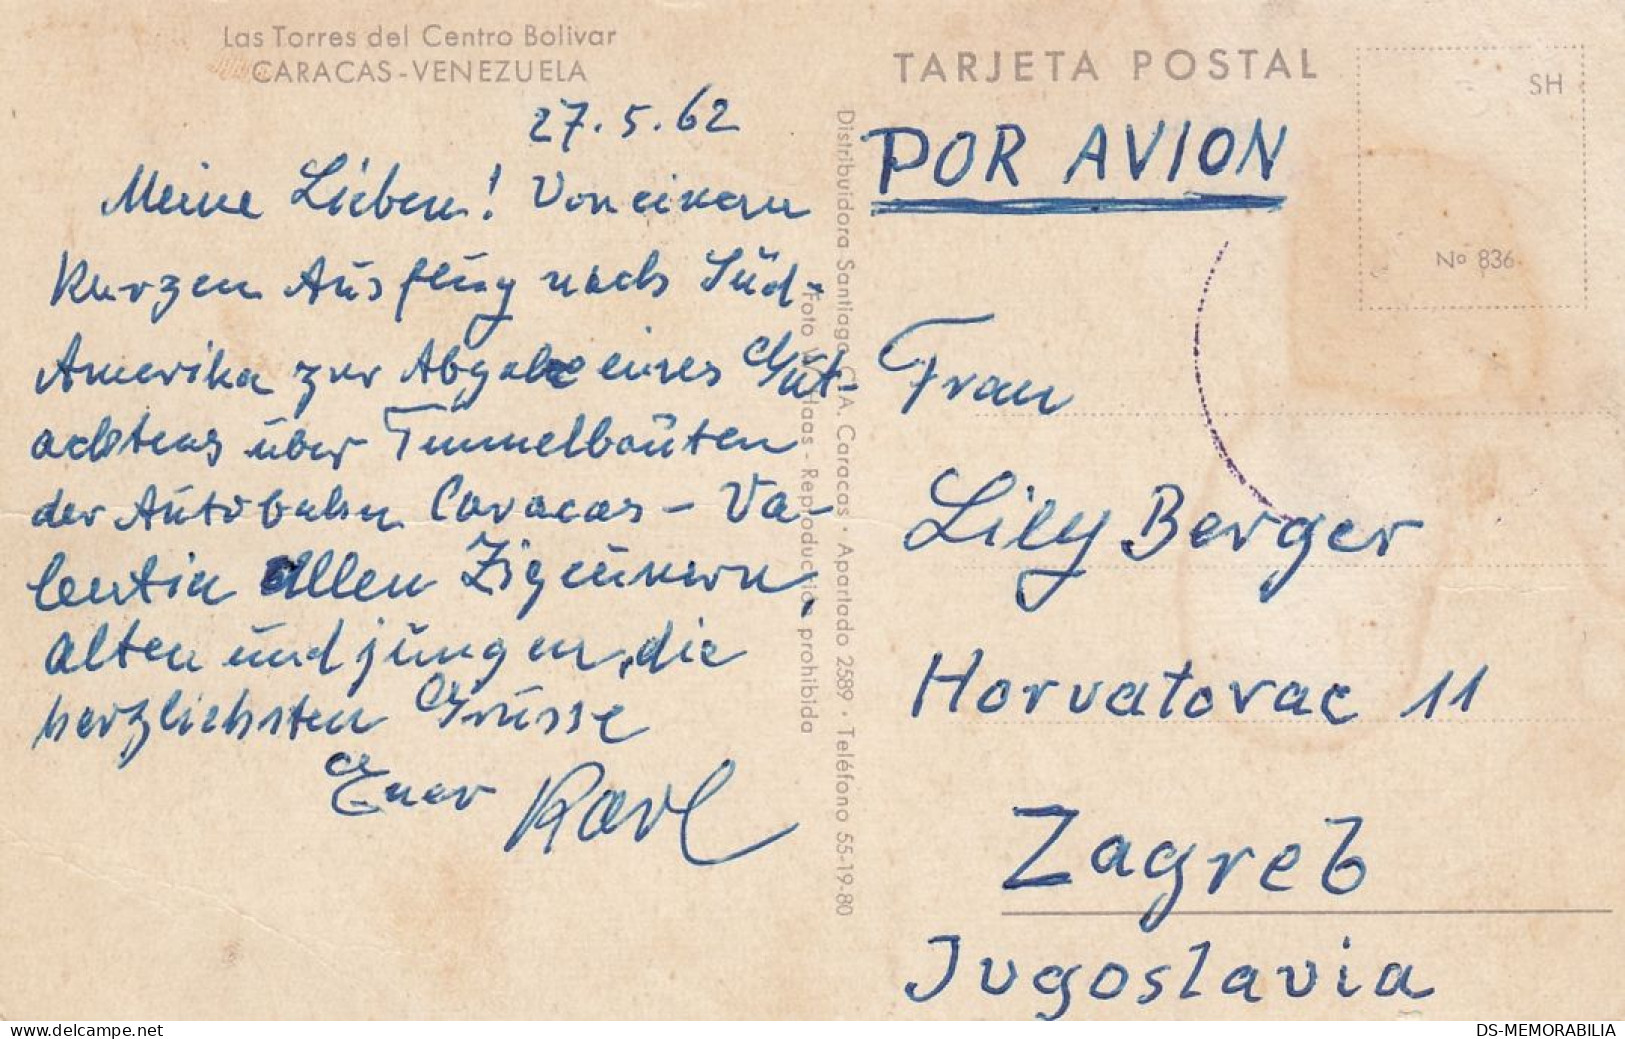 Las Torres del Centro Bolivar
CARACAS-VENEZUELA
27.5.62
Meine Lieben! Von einem
kurzen Ausflug nach Süd-
Amerika zur Abgabe eines Gut-
achtens über Tunnelbauten
der Autobahn Caracas - Va-
lentia allen Zigeunern,
alten und jungen, die
herzlichsten Grüsse
Euer Karl
Distribuidora Santiago, C.A. Caracas · Apartado 2589 · Teléfono 55-19-80
Foto Haas - Reproducción prohibida
TARJETA POSTAL
SH
Nº 836
POR AVION
Frau
Lily Berger
Horvatovac 11
Zagreb
Jugoslavia
DS-MEMORABILIA